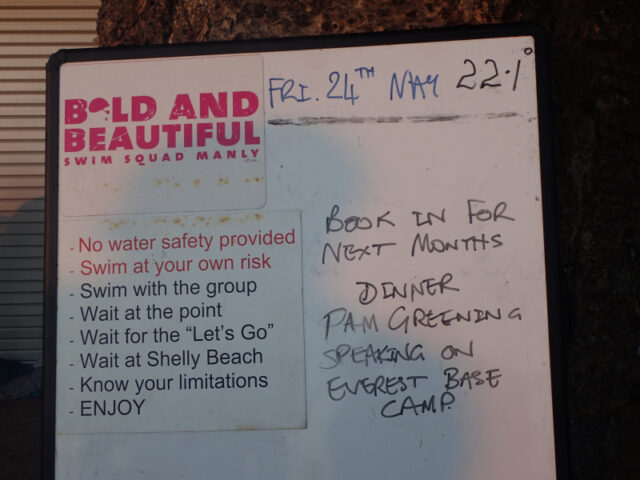 BOLD AND
BEAUTIFUL
SWIM SQUAD MANLY
FRI. 24TH MAY 22.1°
- No water safety provided
- Swim at your own risk
- Swim with the group
- Wait at the point
- Wait for the "Let's Go"
- Wait at Shelly Beach
- Know your limitations
- ENJOY
BOOK IN FOR
NEXT MONTHS
DINNER
PAM GREENING
SPEAKING ON
EVEREST BASE
CAMP.